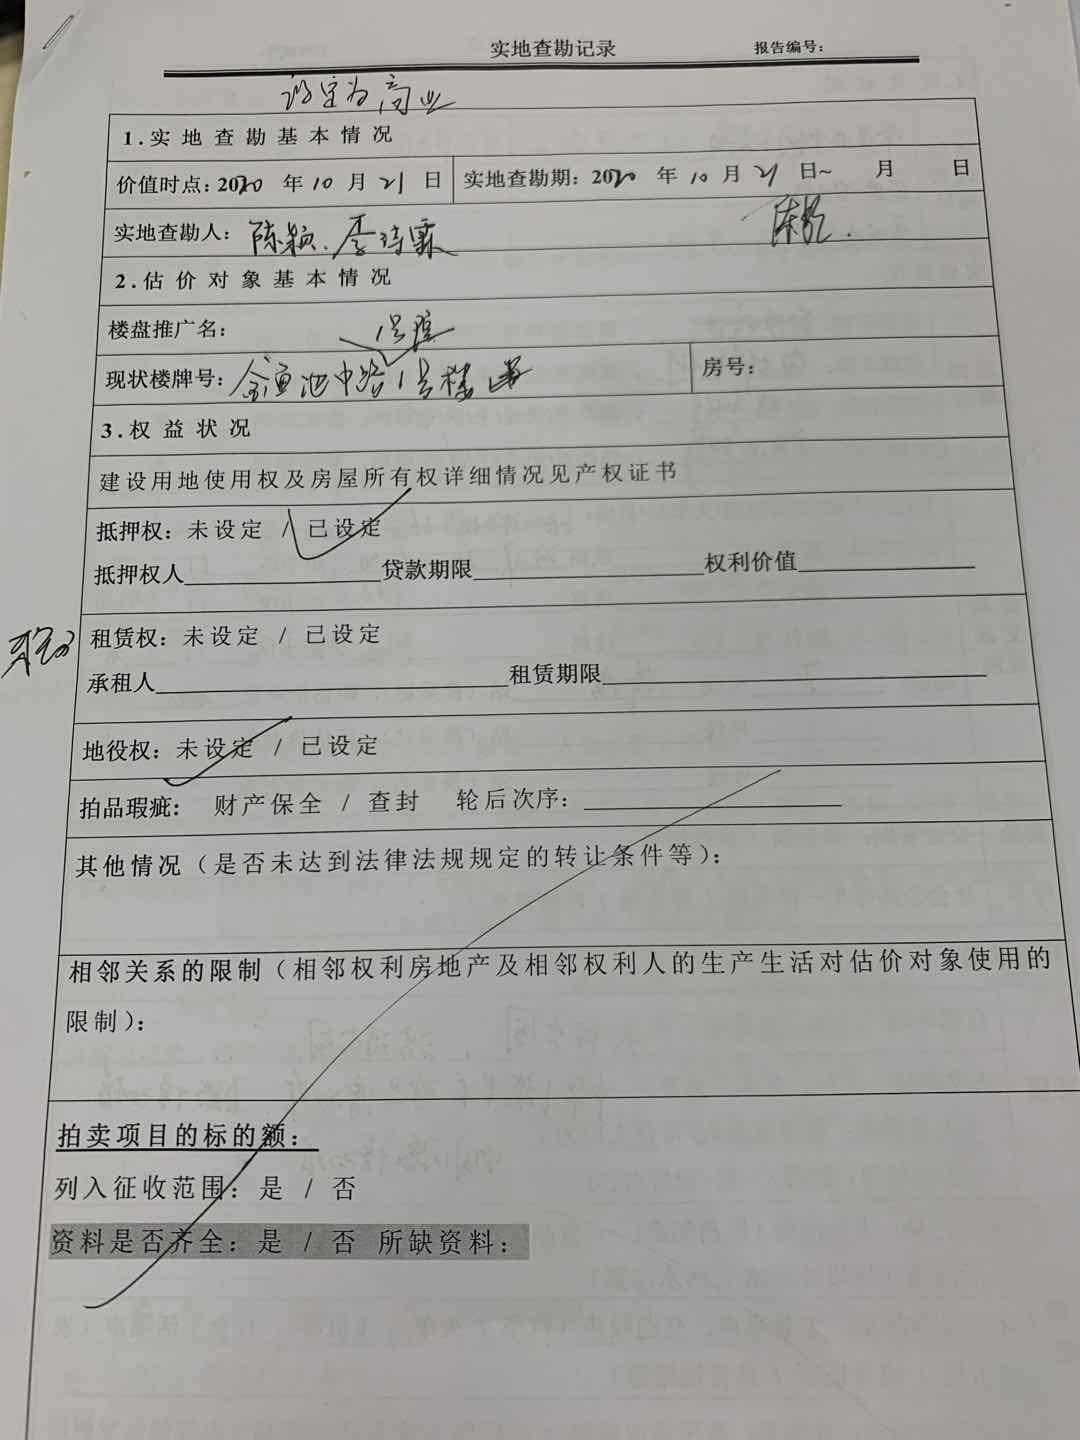 实地查勘记录 报告编号：
设定为商业
1.实地查勘基本情况
价值时点：2020 年 10 月 21 日 实地查勘期：2020 年 10 月 21 日~ 月 日
实地查勘人：陈颖、李诗霖
2.估价对象基本情况
楼盘推广名：
1号院
现状楼牌号：金鱼池中路1号楼 房号：
3.权益状况
建设用地使用权及房屋所有权详细情况见产权证书
抵押权：未设定 / 已设定
抵押权人 贷款期限 权利价值
租赁权：未设定 / 已设定
承租人 租赁期限
地役权：未设定 / 已设定
拍品瑕疵： 财产保全 / 查封 轮后次序：
其他情况（是否未达到法律法规规定的转让条件等）：
相邻关系的限制（相邻权利房地产及相邻权利人的生产生活对估价对象使用的
限制）：
拍卖项目的标的额：
列入征收范围：是 / 否
资料是否齐全：是 / 否 所缺资料：